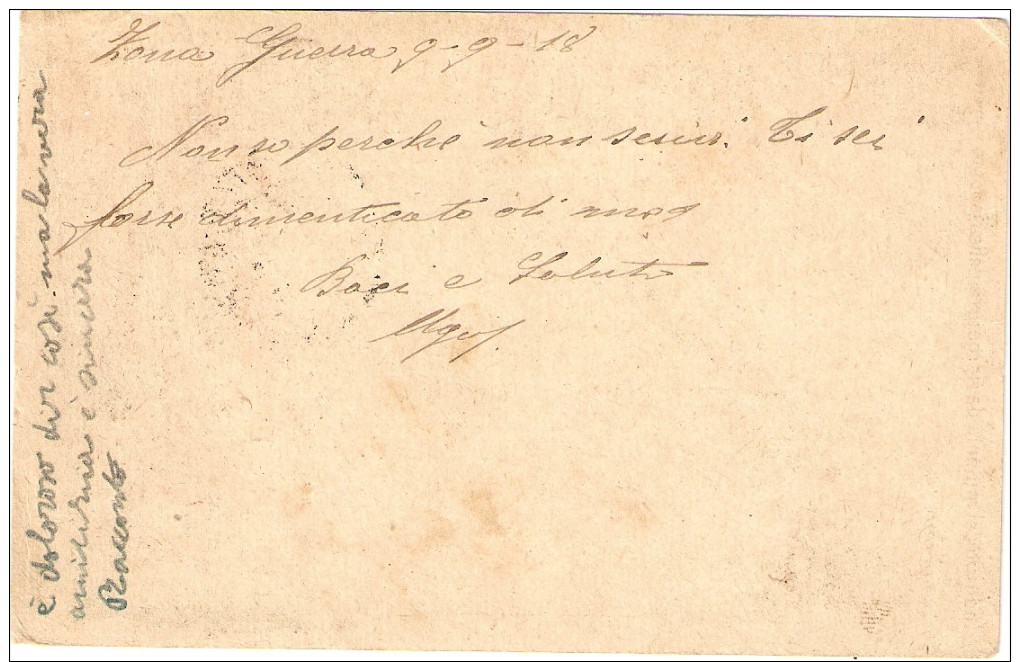 Zona Guerra 9-9-18
Non so perchè non scrivi. Ti sei
forse dimenticato di me
Baci e Saluti
Ugo
è doloroso dir così ma la vera
amicizia è sincera